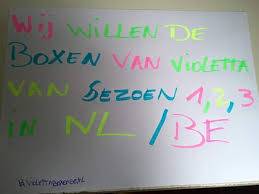 Wij WiLLEN DE
BOXEN VAN VioLETTA
VAN SEZOEN 1,2,3
iN NL / BE